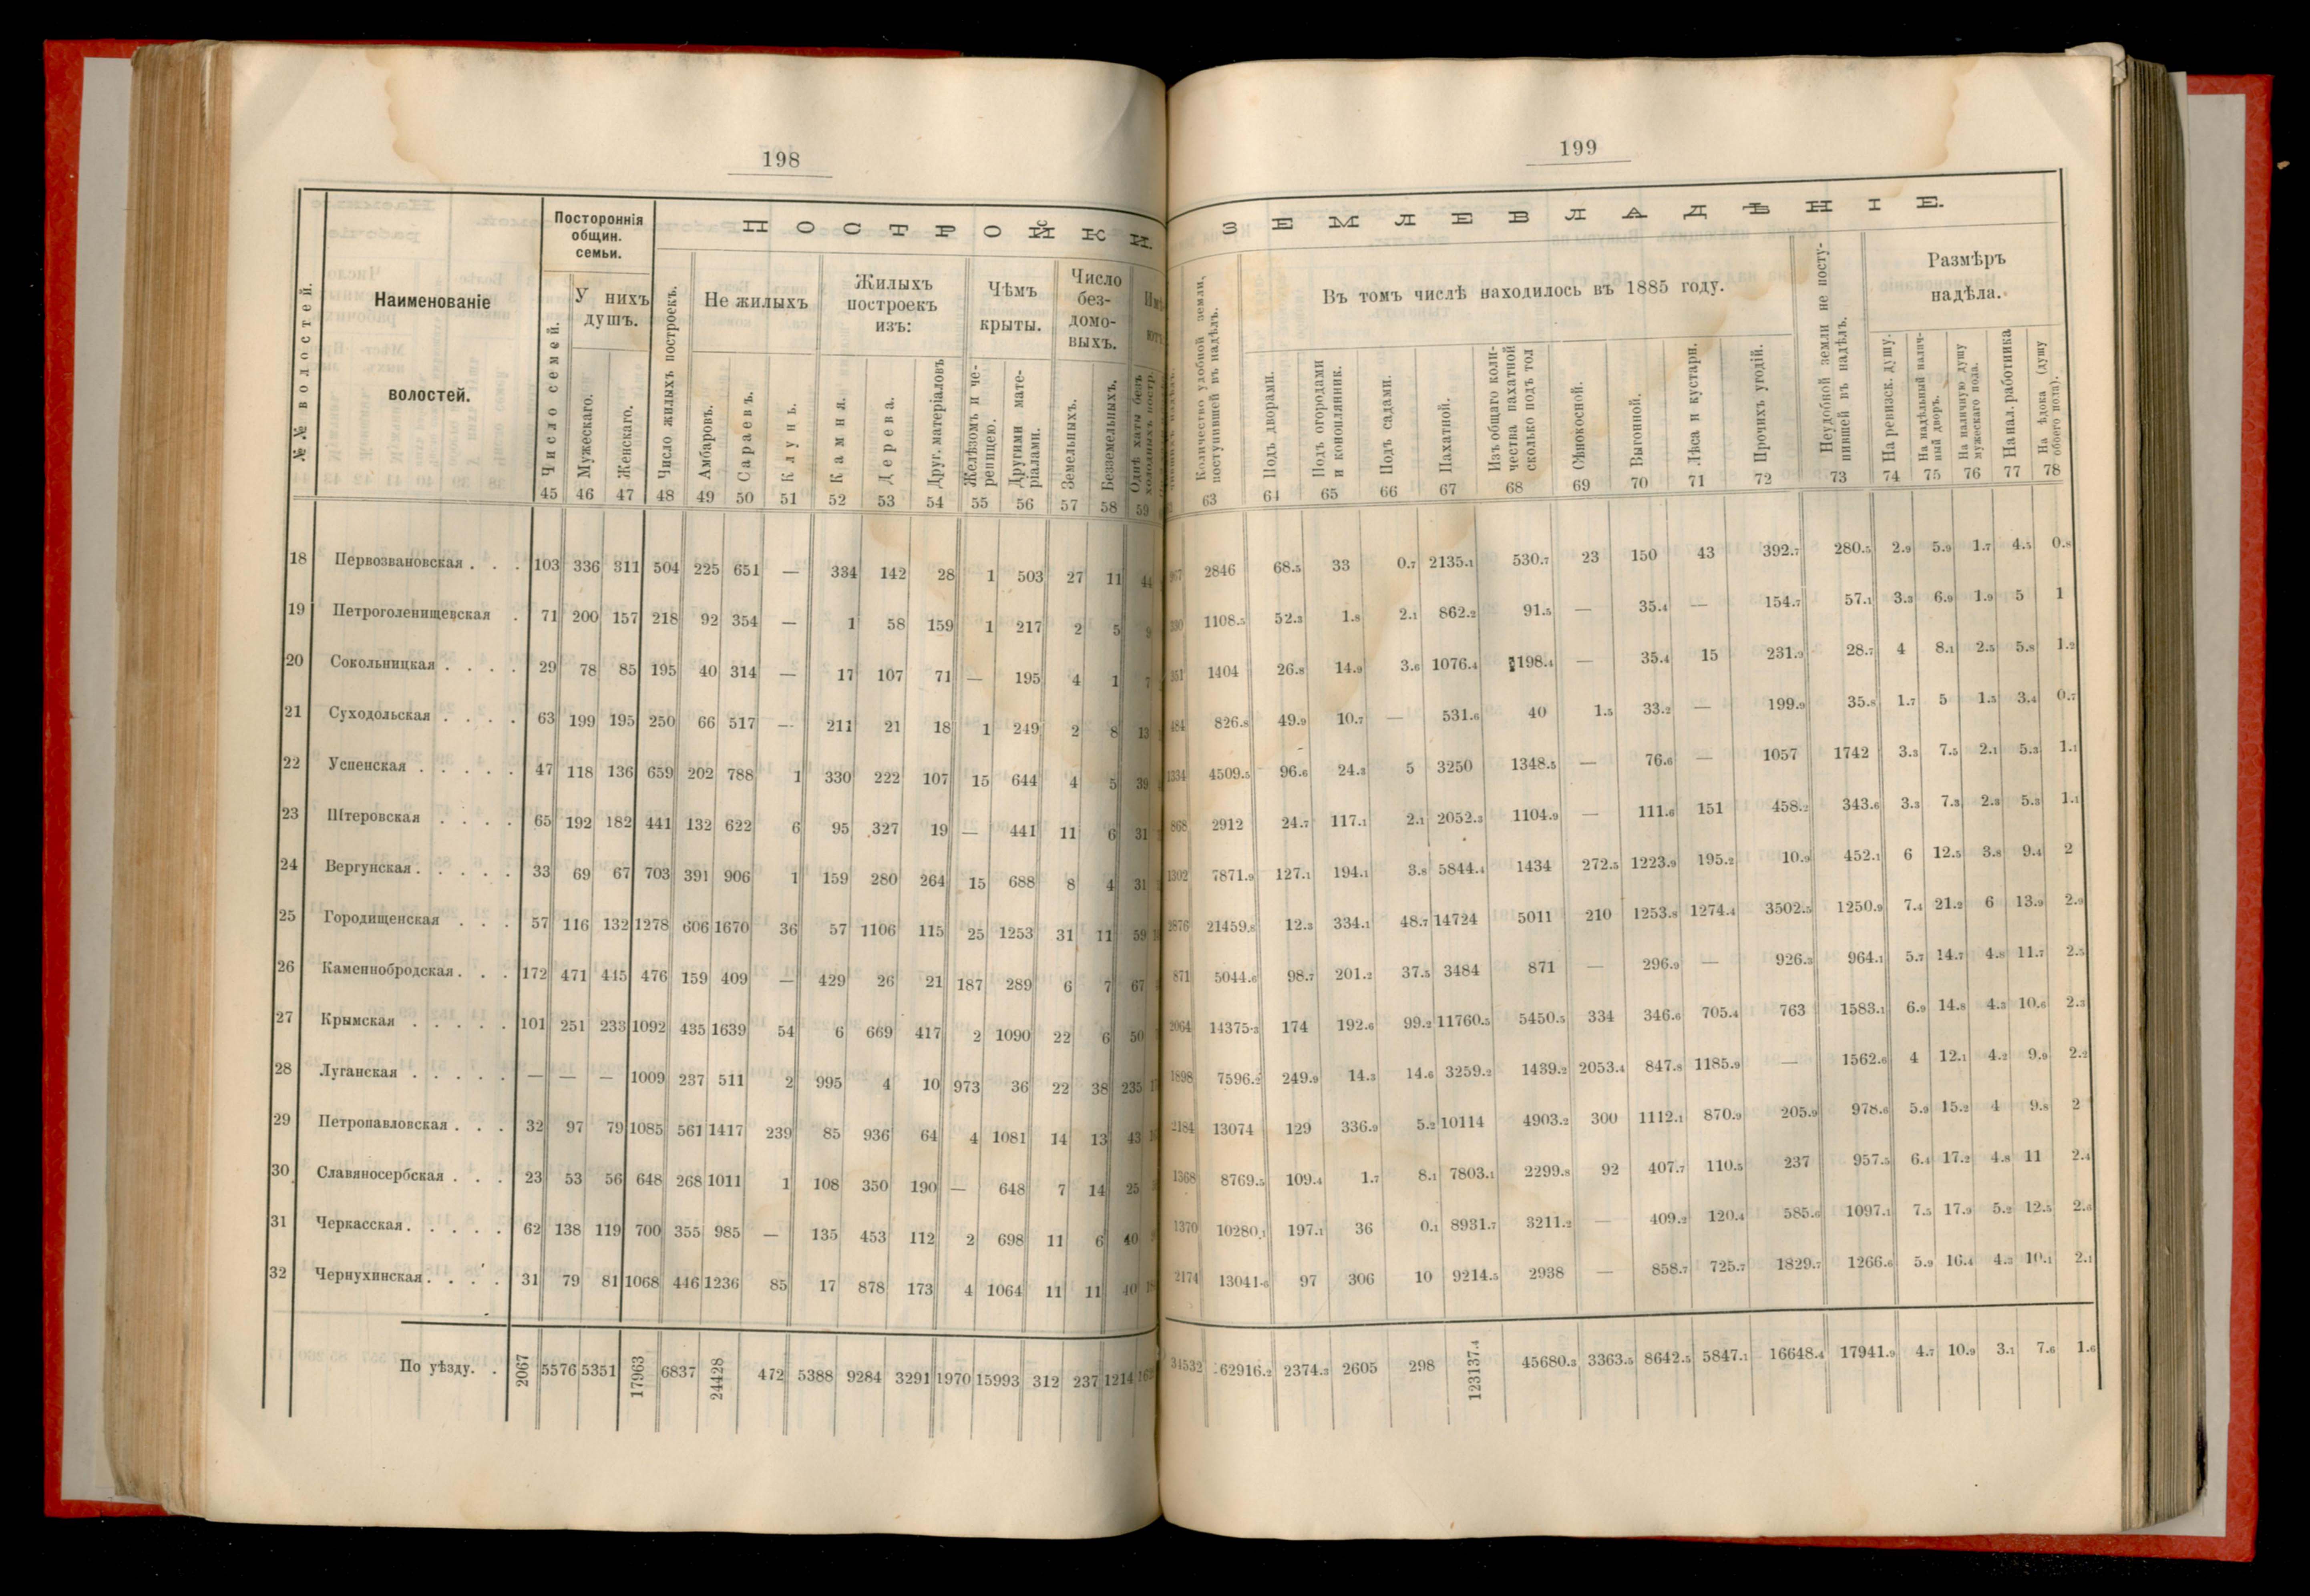 198
№№ волостей.
Наименованіе
волостей.
Постороннія
общин.
семьи.
Число семей.
У нихъ
душъ.
Мужескаго.
Женскаго.
ПОСТРОЙКИ.
Число жилыхъ построекъ.
Не жилыхъ
Амбаровъ.
Сараевъ.
Клунь.
Жилыхъ
построекъ
изъ:
Камня.
Дерева.
Друг. матеріаловъ
Чѣмъ
крыты.
Желѣзомъ и че-
репицею.
Другими мате-
ріалами.
Число
без-
домо-
выхъ.
Земельныхъ.
Безземельныхъ.
Однѣ хаты безъ
холодныхъ постр.
45 46 47 48 49 50 51 52 53 54 55 56 57 58 59
18 Первозвановская . . . 103 336 311 504 225 651 — 334 142 28 1 503 27 11 44
19 Петроголенищевская . 71 200 157 218 92 354 — 1 58 159 1 217 2 5 9
20 Сокольницкая . . . . 29 78 85 195 40 314 — 17 107 71 — 195 4 1 7
21 Суходольская . . . . 63 199 195 250 66 517 — 211 21 18 1 249 2 8 13
22 Успенская . . . . . 47 118 136 659 202 788 1 330 222 107 15 644 4 5 39
23 Штеровская . . . . 65 192 182 441 132 622 6 95 327 19 — 441 11 6 31
24 Вергунская . . . . . 33 69 67 703 391 906 1 159 280 264 15 688 8 4 31
25 Городищенская . . . 57 116 132 1278 606 1670 36 57 1106 115 25 1253 31 11 59
26 Каменнобродская . . . 172 471 445 476 159 409 — 429 26 21 187 289 6 7 67
27 Крымская . . . . . 101 251 233 1092 435 1639 54 6 669 417 2 1090 22 6 50
28 Луганская . . . . . — — — 1009 237 511 2 995 4 10 973 36 22 38 235
29 Петропавловская . . . 32 97 79 1085 561 1417 239 85 936 64 4 1081 14 13 43
30 Славяносербская . . . 23 53 56 648 268 1011 1 108 350 190 — 648 7 14 25
31 Черкасская . . . . . 62 138 119 700 355 985 — 135 453 112 2 698 11 6 40
32 Чернухинская . . . . 31 79 81 1068 446 1236 85 17 878 173 4 1064 11 11 40
По уѣзду. . 2067 5576 5351 17963 6837 24428 472 5388 9284 3291 1970 15993 312 237 1214
199
ЗЕМЛЕВЛАДѢНІЕ.
Количество удобной земли,
поступившей въ надѣлъ.
Въ томъ числѣ находилось въ 1885 году.
Подъ дворами.
Подъ огородами
и коноплянник.
Подъ садами.
Пахатной.
Изъ общаго коли-
чества пахатной
сколько подъ тол
Сѣнокосной.
Выгонной.
Лѣса и кустарн.
Прочихъ угодій.
Неудобной земли не посту-
пившей въ надѣлъ.
Размѣръ
надѣла.
На ревизск. душу.
На надѣльный налич-
ный дворъ.
На наличную душу
мужескаго пола.
На нал. работника
На ѣдока (душу
обоего пола).
63 64 65 66 67 68 69 70 71 72 73 74 75 76 77 78
2846 68.5 33 0.7 2135.1 530.7 23 150 43 392.7 280.5 2.9 5.9 1.7 4.5 0.8
1108.5 52.3 1.8 2.1 862.2 91.5 — 35.4 — 154.7 57.1 3.3 6.9 1.9 5 1
351 1404 26.8 14.9 3.6 1076.4 198.4 — 35.4 15 231.9 28.7 4 8.1 2.5 5.8 1.2
484 826.8 49.9 10.7 — 531.6 40 1.5 33.2 — 199.9 35.8 1.7 5 1.5 3.4 0.7
1334 4509.5 96.6 24.3 5 3250 1348.5 — 76.6 — 1057 1742 3.3 7.5 2.1 5.3 1.1
868 2912 24.7 117.1 2.1 2052.3 1104.9 — 111.6 151 458.2 343.6 3.3 7.3 2.3 5.3 1.1
1302 7871.9 127.1 194.1 3.8 5844.4 1434 272.5 1223.9 195.2 10.9 452.1 6 12.5 3.8 9.4 2
2876 21459.8 12.3 334.1 48.7 14724 5011 210 1253.8 1274.4 3502.5 1250.9 7.4 21.2 6 13.9 2.9
871 5044.6 98.7 201.2 37.5 3484 871 — 296.9 — 926.3 964.1 5.7 14.7 4.8 11.7 2.5
2064 14375.3 174 192.6 99.2 11760.5 5450.5 334 346.6 705.4 763 1583.1 6.9 14.8 4.3 10.6 2.3
1898 7596.2 249.9 14.3 14.6 3259.2 1439.2 2053.4 847.8 1185.9 — 1562.6 4 12.1 4.2 9.9 2.2
2184 13074 129 336.9 5.2 10114 4903.2 300 1112.1 870.9 205.9 978.6 5.9 15.2 4 9.8 2
1368 8769.5 109.4 1.7 8.1 7803.1 2299.8 92 407.7 110.5 237 957.5 6.4 17.2 4.8 11 2.4
1370 10280.1 197.1 36 0.1 8931.7 3211.2 — 409.2 120.4 585.6 1097.1 7.5 17.9 5.2 12.5 2.6
2174 13041.6 97 306 10 9214.5 2938 — 858.7 725.7 1829.7 1266.6 5.9 16.4 4.3 10.1 2.1
34532 62916.2 2374.3 2605 298 123137.4 45680.3 3363.5 8642.5 5847.1 16648.4 17941.9 4.7 10.9 3.1 7.6 1.6